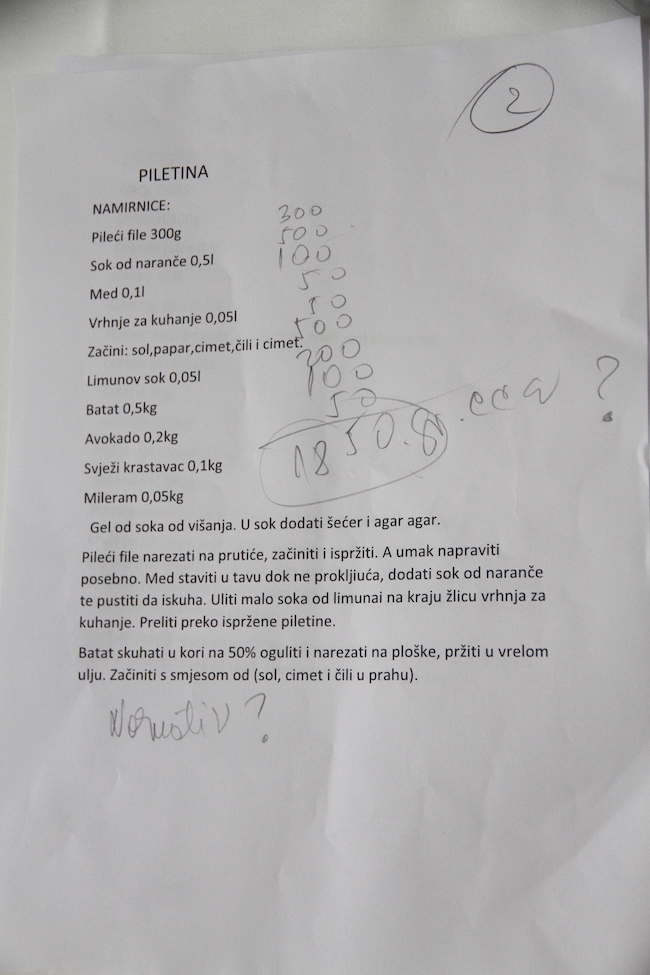 2
PILETINA
NAMIRNICE:
300
Pileći file 300g
500
Sok od naranče 0,5l
100
Med 0,1l
50
Vrhnje za kuhanje 0,05l
50
Začini: sol,papar,cimet,čili i cimet.
500
Limunov sok 0,05l
200
Batat 0,5kg
100
Avokado 0,2kg
50
Svježi krastavac 0,1kg
1850.g. cca ?
Mileram 0,05kg
Gel od soka od višanja. U sok dodati šećer i agar agar.
Pileći file narezati na prutiće, začiniti i ispržiti. A umak napraviti
posebno. Med staviti u tavu dok ne prokljiuća, dodati sok od naranče
te pustiti da iskuha. Uliti malo soka od limunai na kraju žlicu vrhnja za
kuhanje. Preliti preko ispržene piletine.
Batat skuhati u kori na 50% oguliti i narezati na ploške, pržiti u vrelom
ulju. Začiniti s smjesom od (sol, cimet i čili u prahu).
Normativ?